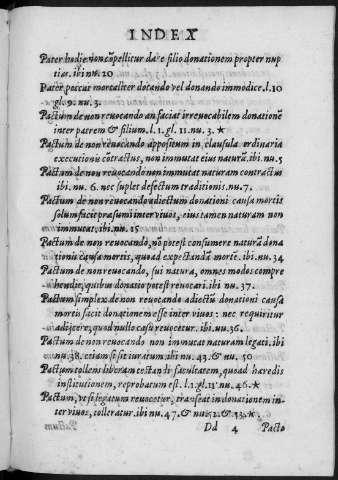 INDEX
Pater hodie non cõpellitur dare filio donationem propter nup
tias. ibi nu. 20
Pater peccat mortaliter dotando vel donando immodice. l. 10
gl. 9. nu. 3.
Pactum de non reuocando an faciat irreuocabilem donationẽ
inter patrem & filium. l. 1. gl. 11. nu. 3. *
Pactum de non reuocando appositum in clausula ordinaria
executionis cõtractus, non immutat eius naturã. ibi. nu. 5
Pactum de non reuocando non immutat naturam contractus
ibi. nu. 6. nec suplet defectum traditionis. nu. 7.
Pactum de non reuocando adiectum donationi causa mortis
solum facit præsumi inter viuos, eius tamen naturam non
immutat. ibi. nu. 15
Pactum de non reuocando, nõ potest consumere naturã dona
tionis causa mortis, quoad expectanda morte. ibi. nu. 34
Pactum de non reuocando, sui natura, omnes modos compre
hendit, quibus donatio potest reuocari. ibi nu. 37.
Pactum simplex de non reuocando adiectũ donationi causa
mortis facit donationem esse inter viuos: nec requiritur
adijcere, quod nullo casu reuocetur. ibi. nu. 36.
Pactum de non reuocando non immutat naturam legati. ibi
nu. 38. etiam si sit iuratum ibi nu. 43. & nu. 50
Pactum tollens liberam testandi facultatem, quoad hæredis
institutionem, reprobatum est. l. 1. gl. 11. nu. 46. *
Pactum, vt si legatum reuocetur, transeat in donationem in-
ter viuos, tolleratur. ibi nu. 47. & nu. 52. & 53. *.
Dd 4 Pacto